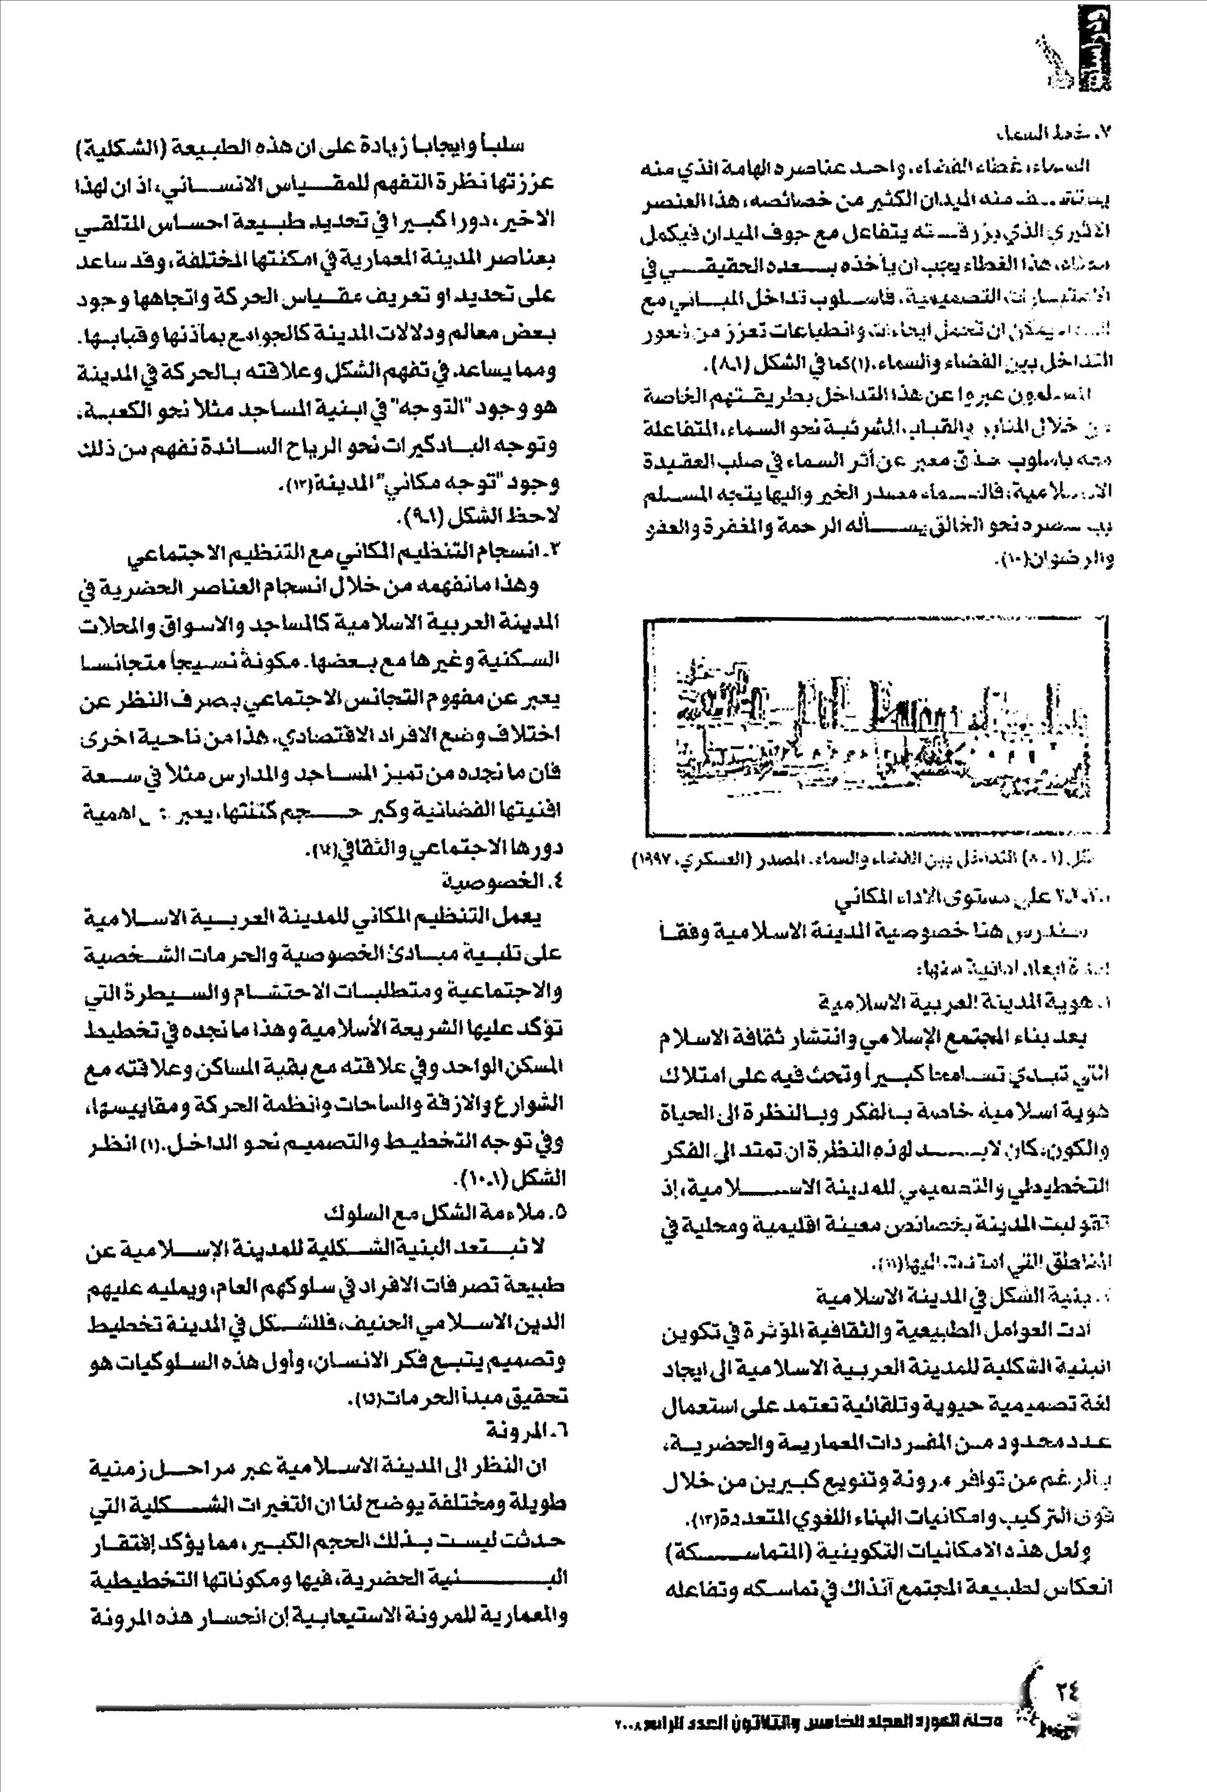 ودراسات
٧. خط السماء
السماء، غطاء الفضاء، واحد عناصره الهامة الذي منه
منه الميدان الكثير من خصائصه، هذا العنصر
الاثيري الذي بزرقته يتفاعل مع جوف الميدان فيكمل
معناه، هذا الغطاء يجب ان يأخذه بعده الحقيقي في
الاعتبارات التصميمية، فاسلوب تداخل المباني مع
السماء يمكن ان تحمل ايحاءات وانطباعات تعزز من شعور
التداخل بين الفضاء والسماء. (١) كما في الشكل (٨.١).
المسلمون عبروا عن هذا التداخل بطريقتهم الخاصة
من خلال المنابر والقباب المشرئبة نحو السماء، المتفاعلة
معه باسلوب حذق معبر عن أثر السماء في صلب العقيدة
الاسلامية، فالسماء مصدر الخير واليها يتجه المسلم
ببصره نحو الخالق يسأله الرحمة والمغفرة والعفو
والرضوان(١٠).
شكل (٨.١) التداخل بين الفضاء والسماء. المصدر (العسكري، ١٩٩٧)
على مستوى الاداء المكاني
سندرس هنا خصوصية المدينة الاسلامية وفقاً
لعدة ابعاد ادائية منها:
١. هوية المدينة العربية الاسلامية
بعد بناء المجتمع الإسلامي وانتشار ثقافة الاسلام
التي تبدي تسامحا كبيراً وتحث فيه على امتلاك
هوية اسلامية خاصة بالفكر وبالنظرة الى الحياة
والكون، كان لابد لهذه النظرة ان تمتد الى الفكر
التخطيطي والتصميمي للمدينة الاسلامية، إذ
تقولبت المدينة بخصائص معينة اقليمية ومحلية في
المناطق التي امتدت اليها(١١).
٢. بنية الشكل في المدينة الاسلامية
أدت العوامل الطبيعية والثقافية المؤثرة في تكوين
البنية الشكلية للمدينة العربية الاسلامية الى ايجاد
لغة تصميمية حيوية وتلقائية تعتمد على استعمال
عدد محدود من المفردات المعمارية والحضرية،
بالرغم من توافر مرونة وتنويع كبيرين من خلال
قوى التركيب وامكانيات البناء اللغوي المتعددة(١٢).
ولعل هذه الامكانيات التكوينية (المتماسكة)
انعكاس لطبيعة المجتمع آنذاك في تماسكه وتفاعله
سلباً وايجاباً زيادة على ان هذه الطبيعة (الشكلية)
عززتها نظرة التفهم للمقياس الانساني، اذ ان لهذا
الاخير، دورا كبيرا في تحديد طبيعة احساس المتلقي
بعناصر المدينة المعمارية في امكنتها المختلفة، وقد ساعد
على تحديد او تعريف مقياس الحركة واتجاهها وجود
بعض معالم ودلالات المدينة كالجوامع بمآذنها وقبابها.
ومما يساعد في تفهم الشكل وعلاقته بالحركة في المدينة
هو وجود "التوجه" في ابنية المساجد مثلاً نحو الكعبة،
وتوجه البادكيرات نحو الرياح السائدة نفهم من ذلك
وجود "توجه مكاني" المدينة(١٣).
لاحظ الشكل (٩.١).
٣. انسجام التنظيم المكاني مع التنظيم الاجتماعي
وهذا مانفهمه من خلال انسجام العناصر الحضرية في
المدينة العربية الاسلامية كالمساجد والاسواق والمحلات
السكنية وغيرها مع بعضها. مكونة نسيجاً متجانسا
يعبر عن مفهوم التجانس الاجتماعي بصرف النظر عن
اختلاف وضع الافراد الاقتصادي. هذا من ناحية اخرى
فان ما نجده من تميز المساجد والمدارس مثلاً في سعة
افنيتها الفضائية وكبر حجم كتلتها، يعبر عن اهمية
دورها الاجتماعي والثقافي(١٤).
٤. الخصوصية
يعمل التنظيم المكاني للمدينة العربية الاسلامية
على تلبية مبادئ الخصوصية والحرمات الشخصية
والاجتماعية ومتطلبات الاحتشام والسيطرة التي
تؤكد عليها الشريعة الأسلامية وهذا ما نجده في تخطيط
المسكن الواحد وفي علاقته مع بقية المساكن وعلاقته مع
الشوارع والازقة والساحات وانظمة الحركة ومقاييسها،
وفي توجه التخطيط والتصميم نحو الداخل.(١) انظر
الشكل (١٠.١).
٥. ملاءمة الشكل مع السلوك
لا تبتعد البنية الشكلية للمدينة الإسلامية عن
طبيعة تصرفات الافراد في سلوكهم العام، ويمليه عليهم
الدين الاسلامي الحنيف، فللشكل في المدينة تخطيط
وتصميم يتبع فكر الانسان، وأول هذه السلوكيات هو
تحقيق مبدأ الحرمات(١٥).
٦. المرونة
ان النظر الى المدينة الاسلامية عبر مراحل زمنية
طويلة ومختلفة يوضح لنا ان التغيرات الشكلية التي
حدثت ليست بذلك الحجم الكبير، مما يؤكد إفتقار
البنية الحضرية، فيها ومكوناتها التخطيطية
والمعمارية للمرونة الاستيعابية إن انحسار هذه المرونة
٢٤
مجلة المورد المجلد الخامس والثلاثون العدد الرابع ٢٠٠٨